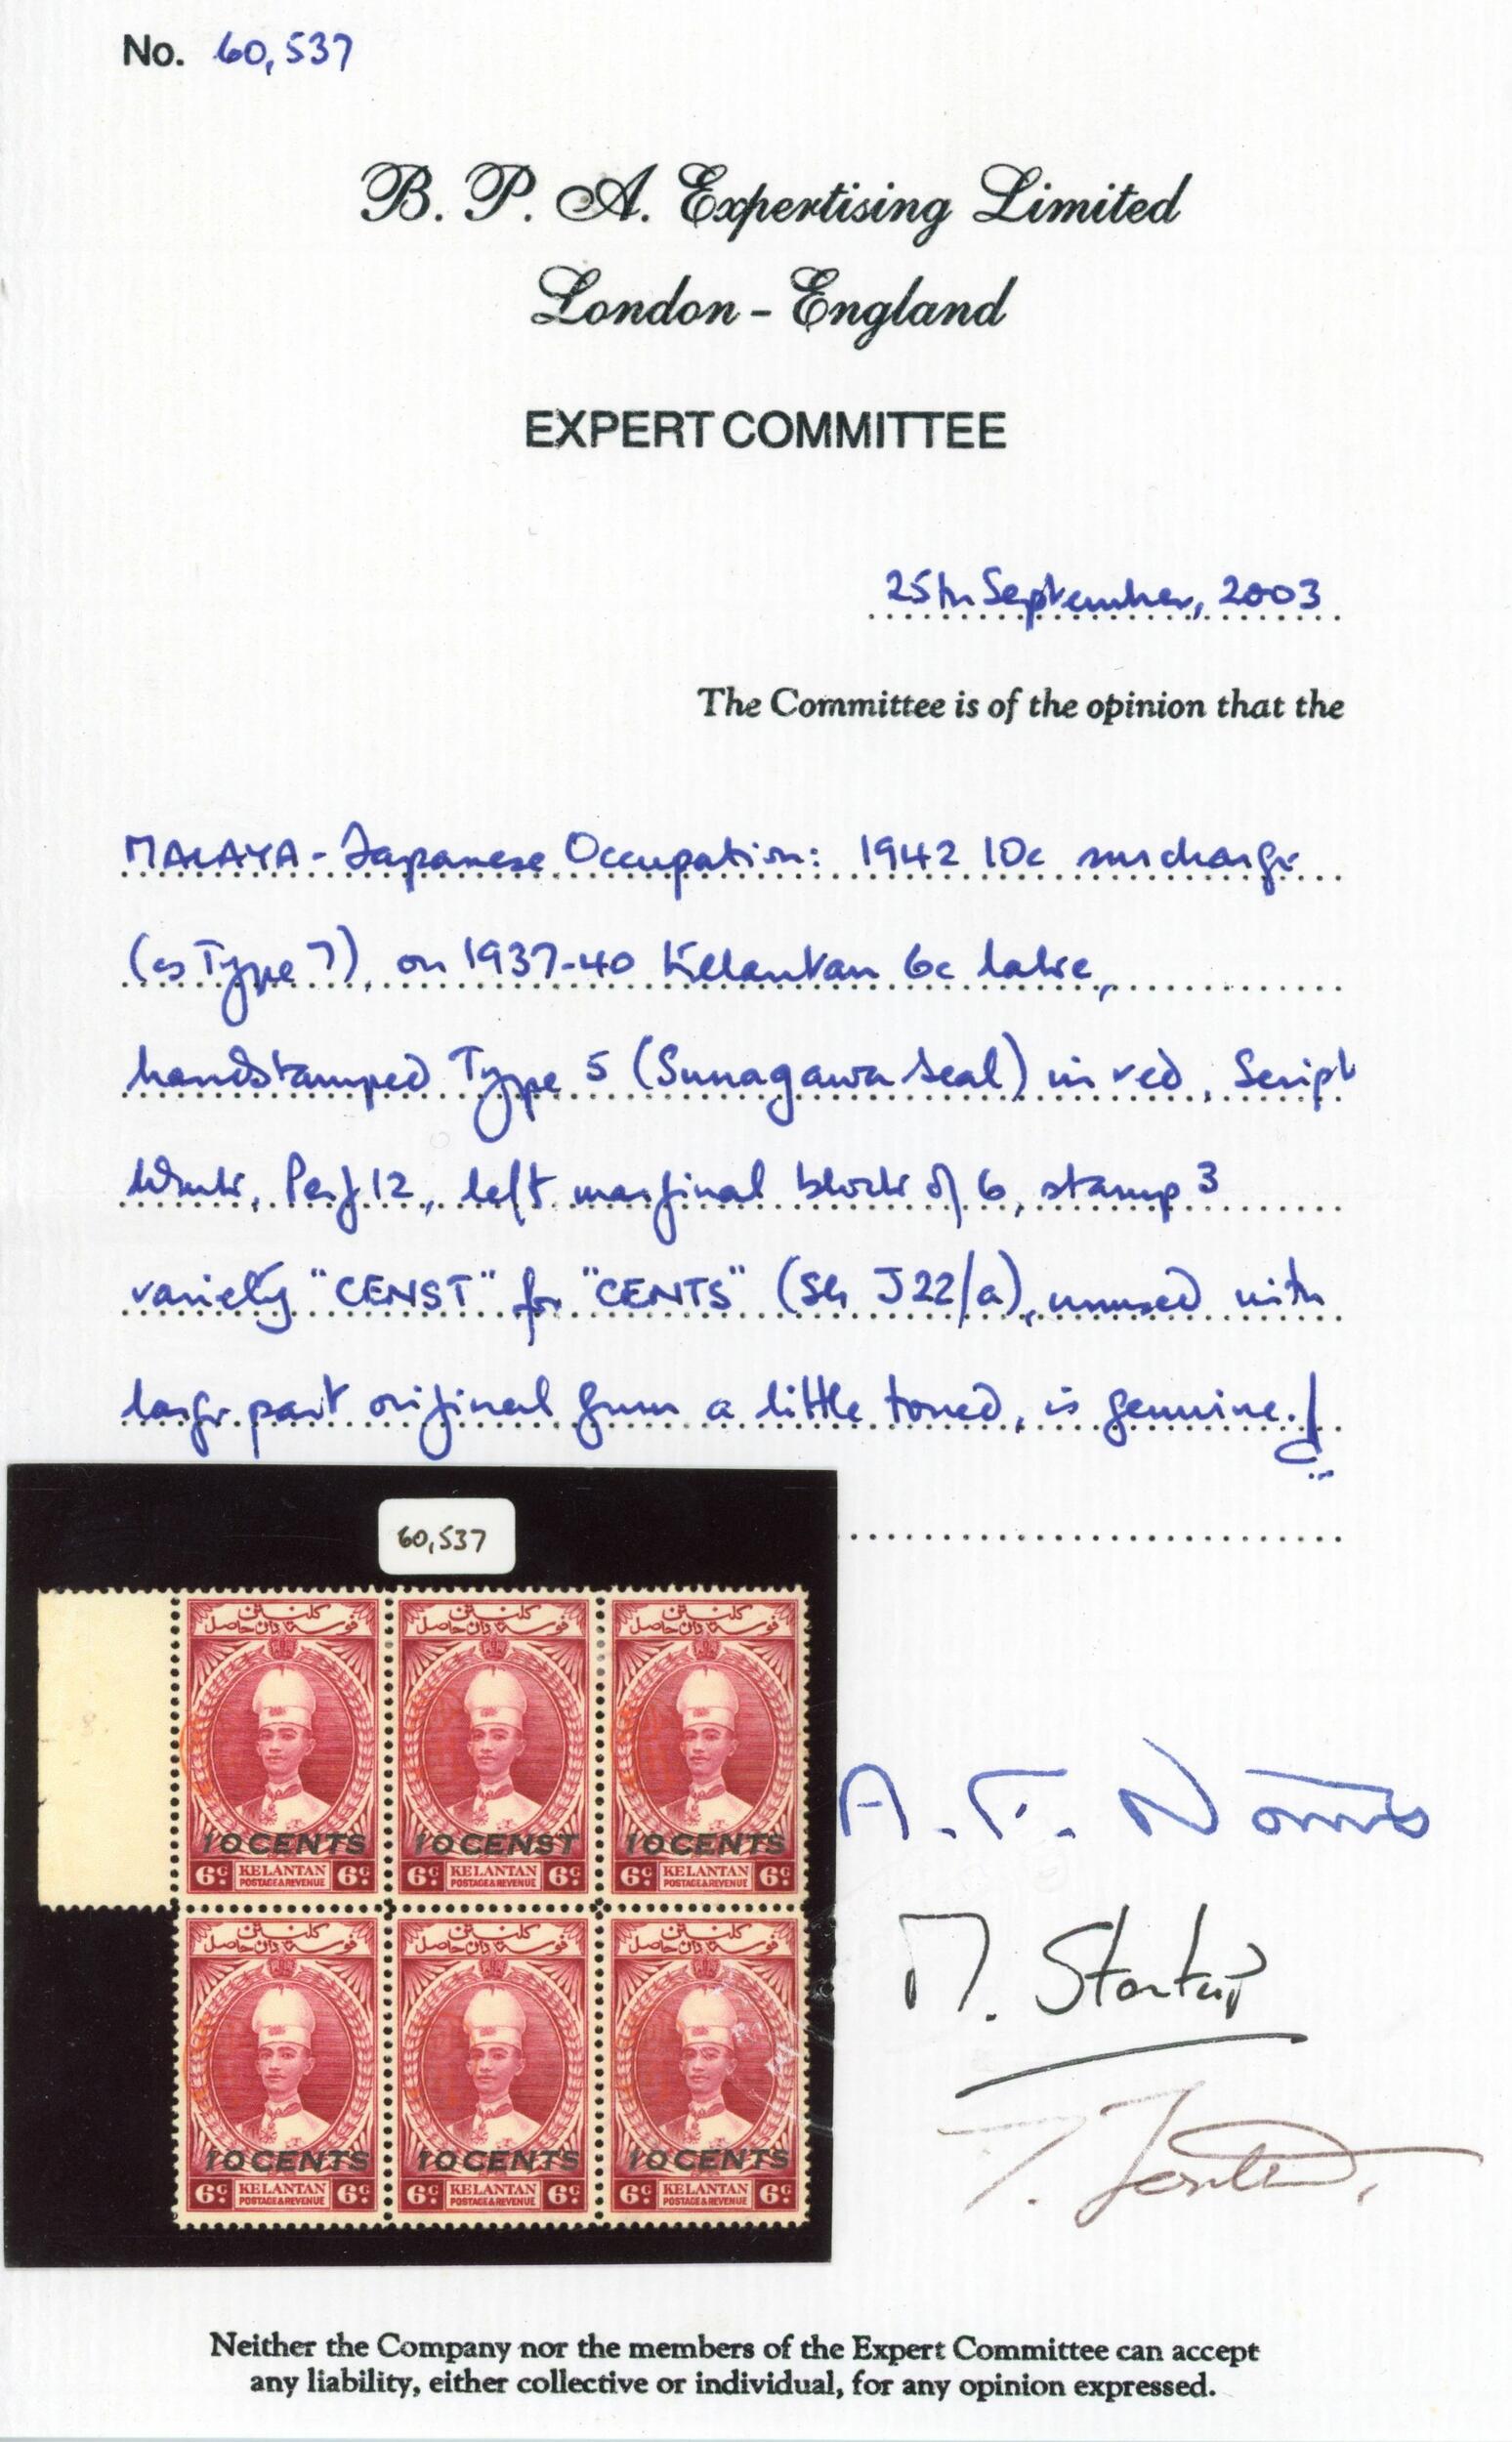 No. 60,537
B. P. A. Expertising Limited
London - England
EXPERT COMMITTEE
25th September, 2003
The Committee is of the opinion that the
MALAYA - Japanese Occupation: 1942 10c surcharge
(as Type 7), on 1937-40 Kelantan 6c lake,
handstamped Type 5 (Sunagawa Seal) in red, Script
Wmk, Perf 12, left marginal block of 6, stamp 3
variety "CENST" for "CENTS" (SG J22/a), unused with
large part original gum a little toned, is genuine.
60,537
كلنتن كلنتن كلنتن
10 CENTS 10 CENST 10 CENTS
6c KELANTAN 6c 6c KELANTAN 6c 6c KELANTAN 6c
POSTAGE & REVENUE POSTAGE & REVENUE POSTAGE & REVENUE
كلنتن كلنتن كلنتن
10 CENTS 10 CENTS 10 CENTS
6c KELANTAN 6c 6c KELANTAN 6c 6c KELANTAN 6c
POSTAGE & REVENUE POSTAGE & REVENUE POSTAGE & REVENUE
A. F. Norris
M.
Neither the Company nor the members of the Expert Committee can accept
any liability, either collective or individual, for any opinion expressed.